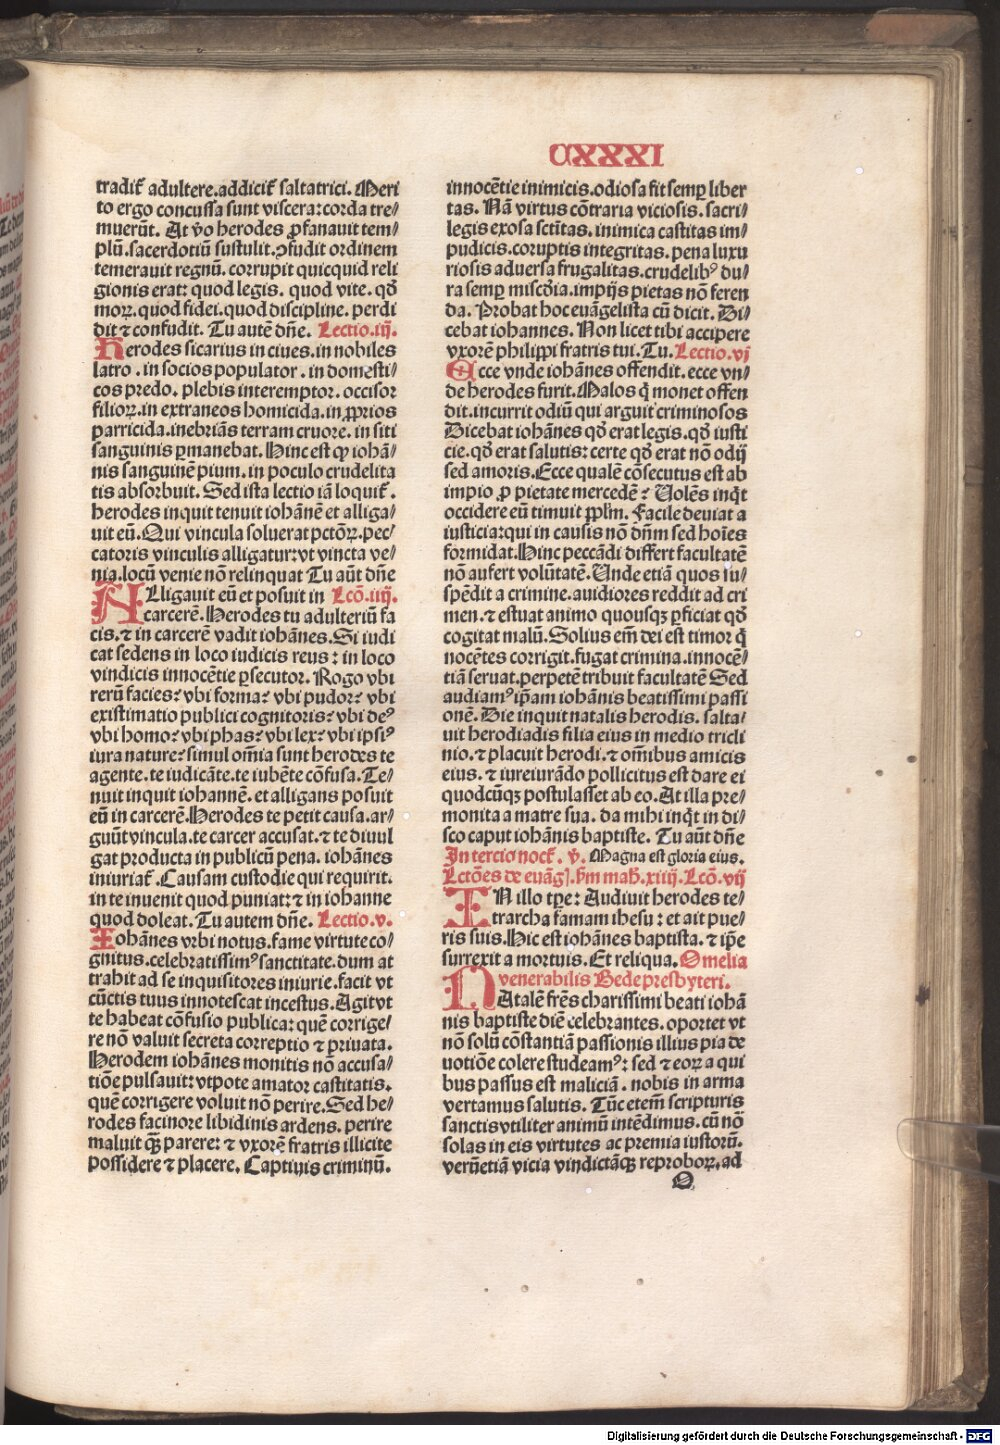 CXXXI
tradit᷑ adultere.addicit᷑ saltatrici. Meri
to ergo concussa sunt viscera:corda tre/
muerūt. At v̊o herodes ꝓfanauit tem-
plū.sacerdotiū sustulit.ꝯfudit ordinem
temerauit regnū. corrupit quicquid reli
gionis erat: quod legis. quod vite. qđ
moꝝ. quod fidei. quod discipline. perdi
dit ⁊ confudit. Tu autē dn̄e. Lectio.iij.
Herodes sicarius in ciues.in nobiles
latro . in socios populator . in domesti/
cos predo. plebis interemptor. occisor
filioꝝ.in extraneos homicida.in ꝓprios
parricida.inebriās terram cruore. in siti
sanguinis ꝑmanebat. Hinc est ꝙ iohā/
nis sanguinē pium. in poculo crudelita
tis absorbuit. Sed ista lectio iā loquit᷑.
herodes inquit tenuit iohānē et alliga/
uit eū.Qui vincula soluerat pctōꝝ.pec/
catoris vinculis alligatur:vt vincta ve/
nia.locū venie nō relinquat Tu aūt dn̄e
ALligauit eū et posuit in Lcō.iiij.
carcerē.Herodes tu adulteriū fa
cis.⁊ in carcerē vadit iohānes.Si iudi
cat sedens in loco iudicis reus: in loco
vindicis innocētie ꝑsecutor. Rogo vbi
rerū facies? vbi forma? vbi pudor? vbi
existimatio publici cognitoris? vbi deꝰ
vbi homo? vbi phas? vbi lex? vbi ipsiꝰ
iura nature? simul om̄ia sunt herodes te
agente.te iudicāte.te iubēte cōfusa. Te/
nuit inquit iohannē. et alligans posuit
eū in carcerē.Herodes te petit causa.ar/
guūt vincula.te carcer accusat.⁊ te diuul
gat producta in publicū pena. iohānes
iniuriat᷑. Causam custodie qui requirit.
in te inuenit quod puniat:⁊ in iohanne
quod doleat. Tu autem dn̄e. Lectio.v.
Iohānes vrbi notus.fame virtute co/
gnitus.celebratissimꝰ sanctitate.dum at
trahit ad se inquisitores iniurie.facit vt
cūctis tuus innotescat incestus.Agit vt
te habeat cōfusio publica: quē corrige/
re nō valuit secreta correptio ⁊ priuata.
Herodem iohānes monitis nō accusa/
tiōe pulsauit: vtpote amator castitatis.
quē corrigere voluit nō perire.Sed he-
rodes facinore libidinis ardens. perire
maluit qȝ̄ parere: ⁊ vxorē fratris illicite
possidere ⁊ placere. Captiuis criminū.
innocētie inimicis.odiosa fit semꝑ liber
tas. Nā virtus cōtraria viciosis. sacri/
legis exosa sctītas. inimica castitas im/
pudicis.coruptis integritas. pena luxu
riosis aduersa frugalitas.crudelibꝰ du/
ra semꝑ misc̄dia.impijs pietas nō feren
da. Probat hoc euāgelista cū dicit. Di-
cebat iohannes. Non licet tibi accipere
vxorē philippi fratris tui. Tu.Lectio.vj
Ecce vnde iohānes offendit. ecce vn/
de herodes furit.Malos q̄ monet offen
dit.incurrit odiū qui arguit criminosos
Dicebat iohānes.qđ erat legis.qđ iusti
cie.qđ erat salutis: certe qđ erat nō odij
sed amoris.Ecce qualē cōsecutus est ab
impio ꝓ pietate mercedē? Uolēs inq̇t
occidere eū timuit ppl̄m. Facile deuiat a
iusticia:qui in causis nō dn̄m sed hoīes
formidat.Hinc peccādi differt facultatē
nō aufert volūtatē.Unde etiā quos su/
spēdit a crimine.auidiores reddit ad cri
men.⁊ estuat animo quousqȝ ꝑficiat qđ
cogitat malū.Solius em̄ dei est timor q̇
nocētes corrigit.fugat crimina.innocē/
tiā seruat.perpetē tribuit facultatē Sed
audiamꝰ ip̄am iohānis beatissimi passi
onē. Die inquit natalis herodis. salta/
uit herodiadis filia eius in medio tricli
nio.⁊ placuit herodi.⁊ om̄ibus amicis
eius. ⁊ iureiurādo pollicitus est dare ei
quodcūqȝ postulasset ab eo.At illa pre/
monita a matre sua. da mihi inq̇t in di/
sco caput iohānis baptiste. Tu aūt dn̄e
In tercio noct᷑. ꝟ. Magna est gloria eius.
Lctōes de euāgl̓.ẜm mat̄h.xiiij.Lcō.vij
IN illo tꝑe: Audiuit herodes te-
trarcha famam ihesu: et ait pue/
ris suis.Hic est iohānes baptista. ⁊ ip̄e
surrexit a mortuis. Et reliqua. Omelia
venerabilis Bede presbyteri.
NAtalē fr̄es charissimi beati iohā
nis baptiste diē celebrantes. oportet vt
nō solū cōstantiā passionis illius pia de
uotiōe colere studeamꝰ: sed ⁊ eoꝝ a qui
bus passus est maliciā . nobis in arma
vertamus salutis. Tūc etem̄ scripturis
sanctis vtiliter animū intēdimus. cū nō
solas in eis virtutes ac premia iustorū.
verūetiā vicia vindictāqȝ reproboꝝ.ad
O
Digitalisierung gefördert durch die Deutsche Forschungsgemeinschaft - DFG